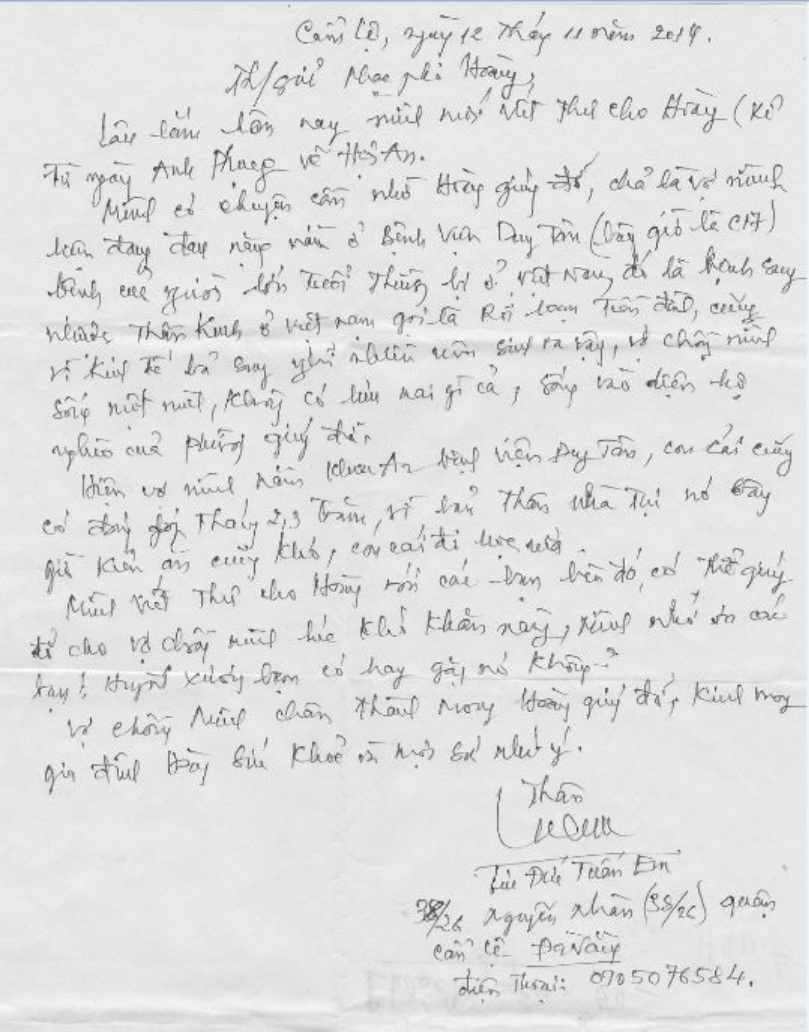 Cẩm Lệ, ngày 12 tháng 11 năm 2014.
Th/gửi Nhạc phi Hoàng,
Lâu lắm hôm nay mình mới viết thư cho Hoàng (kể
từ ngày Anh Phung về Hội An.
Mình có chuyện cần nhờ Hoàng giúp đỡ, chả là vợ mình
hiện đang đau nặng nằm ở Bệnh Viện Duy Tân (bây giờ là C17)
bệnh của người lớn tuổi thường bị ở Việt Nam đó là bệnh suy
nhược thần kinh ở Việt Nam gọi là Rối loạn tiền đình, cũng
vì kinh tế bả suy nghĩ nhiều nên sinh ra vậy, vợ chồng mình
sống một mình, không có gì cả, sống vào diện hộ
nghèo của phường giúp đỡ.
Hiện vợ mình nằm khoa A2 bệnh viện Duy Tân, con cái cũng
có đóng góp tháng 2,3 trăm, vì bản thân nhà tụi nó bây
giờ kiếm ăn cũng khó, con cái đi học nữa.
Mình viết thư cho Hoàng với các bạn bên đó, có thể giúp
đỡ cho vợ chồng mình lúc khó khăn này, mình nhớ ơn các
bạn! Huỳnh Xướng bạn có hay gặp nó không?
Vợ chồng mình chân thành mong Hoàng giúp đỡ, kính mong
gia đình Hoàng sức khoẻ và mọi sự như ý.
Thân
Đức Tuấn Em
38/26 Nguyễn Nhàn (38/26) quận
Cẩm Lệ Đà Nẵng
điện thoại: 0905076584.